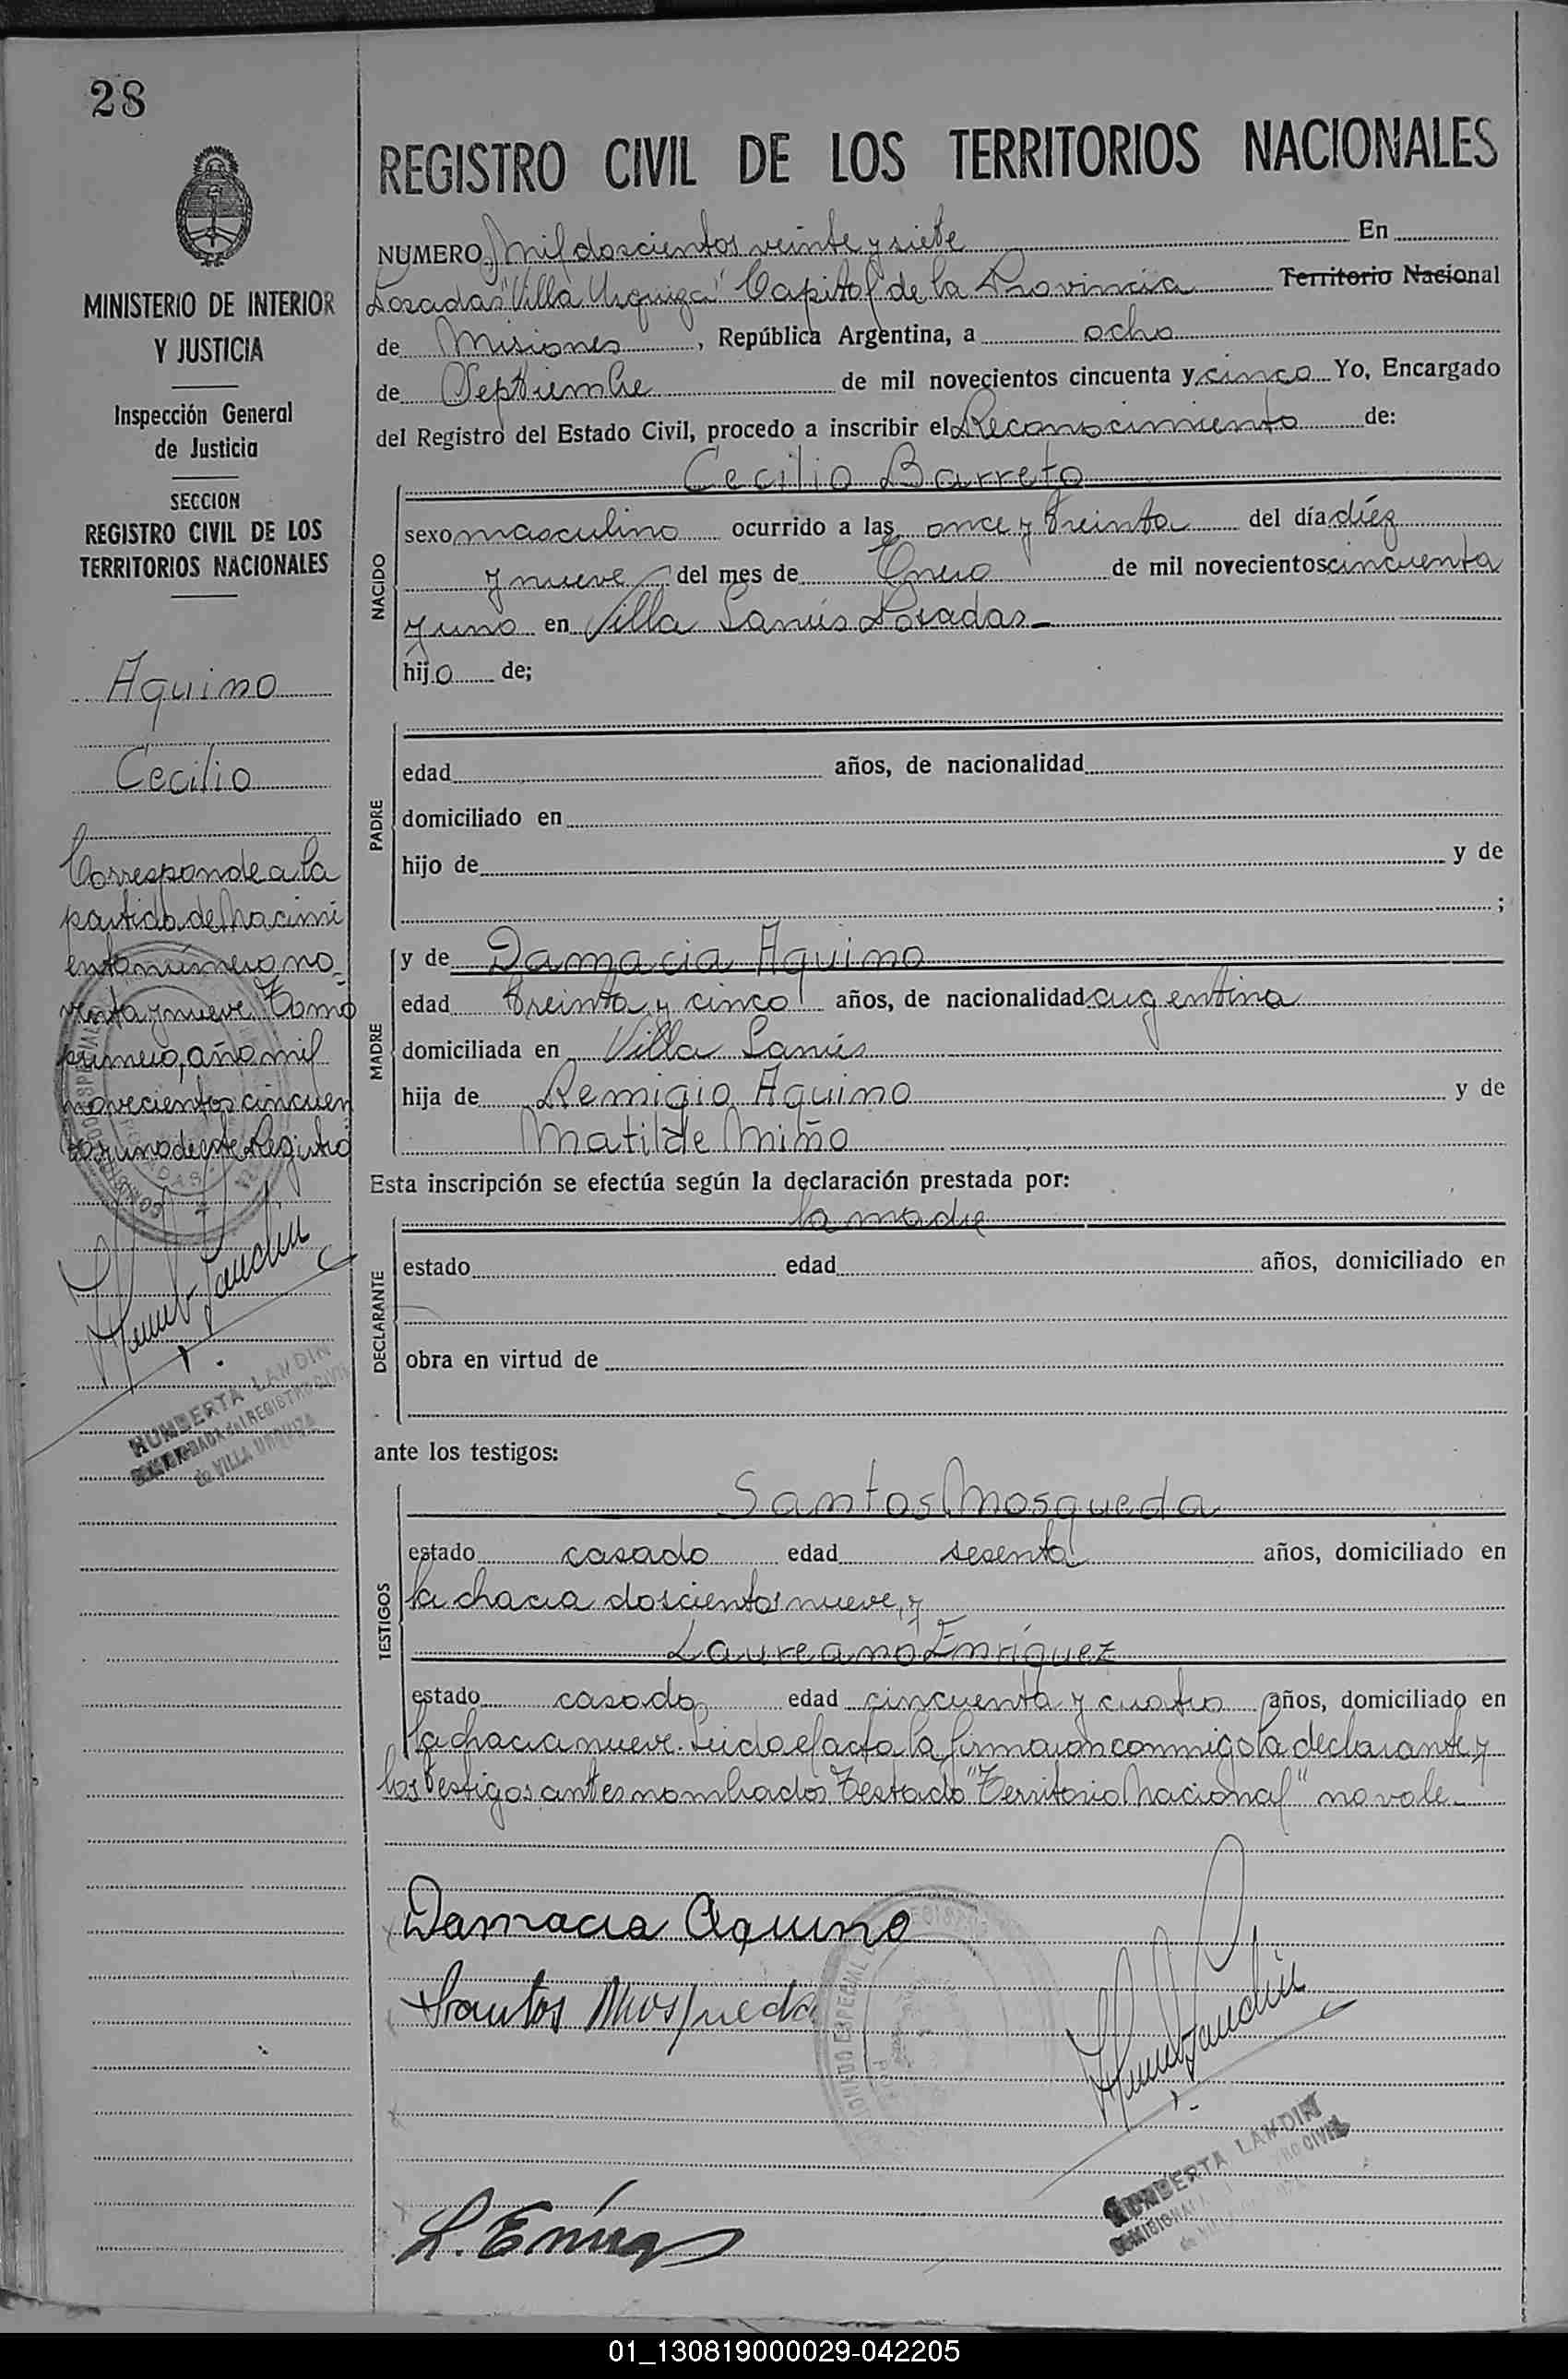 28
MINISTERIO DE INTERIOR
Y JUSTICIA
Inspección General
de Justicia
SECCION
REGISTRO CIVIL DE LOS
TERRITORIOS NACIONALES
Aquino
Cecilio
Corresponde a la
partida de Nacimi
ento número no-
venta y nueve Tomo
primero, año mil
novecientos cincuen
ta y uno de este Registro
HUMBERTA LANDIN
ENCARGADA del REGISTRO CIVIL
de VILLA URQUIZA
REGISTRO CIVIL DE LOS TERRITORIOS NACIONALES
NUMERO Mil doscientos veinte y siete En
Posadas "Villa Urquiza" Capital de la Provincia Territorio Nacional
de Misiones, República Argentina, a ocho
de Septiembre de mil novecientos cincuenta y cinco Yo, Encargado
del Registro del Estado Civil, procedo a inscribir el Reconocimiento de:
Cecilio Barreto
NACIDO
sexo masculino ocurrido a las once y treinta del día diéz
y nueve del mes de Enero de mil novecientos cincuenta
y uno en Villa Lanús Posadas-
hijo de;
PADRE
edad años, de nacionalidad
domiciliado en
hijo de y de
;
MADRE
y de Damacia Aquino
edad treinta y cinco años, de nacionalidad argentina
domiciliada en Villa Lanús
hija de Remigio Aquino y de
Matilde Miño
Esta inscripción se efectúa según la declaración prestada por:
la madre
DECLARANTE
estado edad años, domiciliado en
obra en virtud de
ante los testigos:
TESTIGOS
Santos Mosqueda
estado casado edad sesenta años, domiciliado en
la chacra doscientos nueve, y
Laureano Enríquez
estado casado edad cincuenta y cuatro años, domiciliado en
la chacra nueve. Leida el acta la firmaron conmigo la declarante y
los testigos antes nombrados. Testado "Territorio Nacional" no vale.-
Damacia Aquino
Santos Mosqueda
HUMBERTA LANDIN
L. Enríquez
01_130819000029-042205